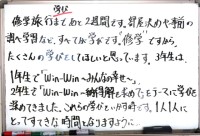 学び
修学旅行まであと2週間です。部屋決めや事前の
調べ学習など、すべてが学びです。“修学”ですから、
たくさんの学びをしてほしいと思っています。3年生は、
1年生で「Win-Win～みんなの幸せ～」
2年生で「Win-Win～納得解を求めて」をテーマに学びを
深めてきました。これらの学びをいかす時です。1人1人に
とってすてきな時間となりますように…